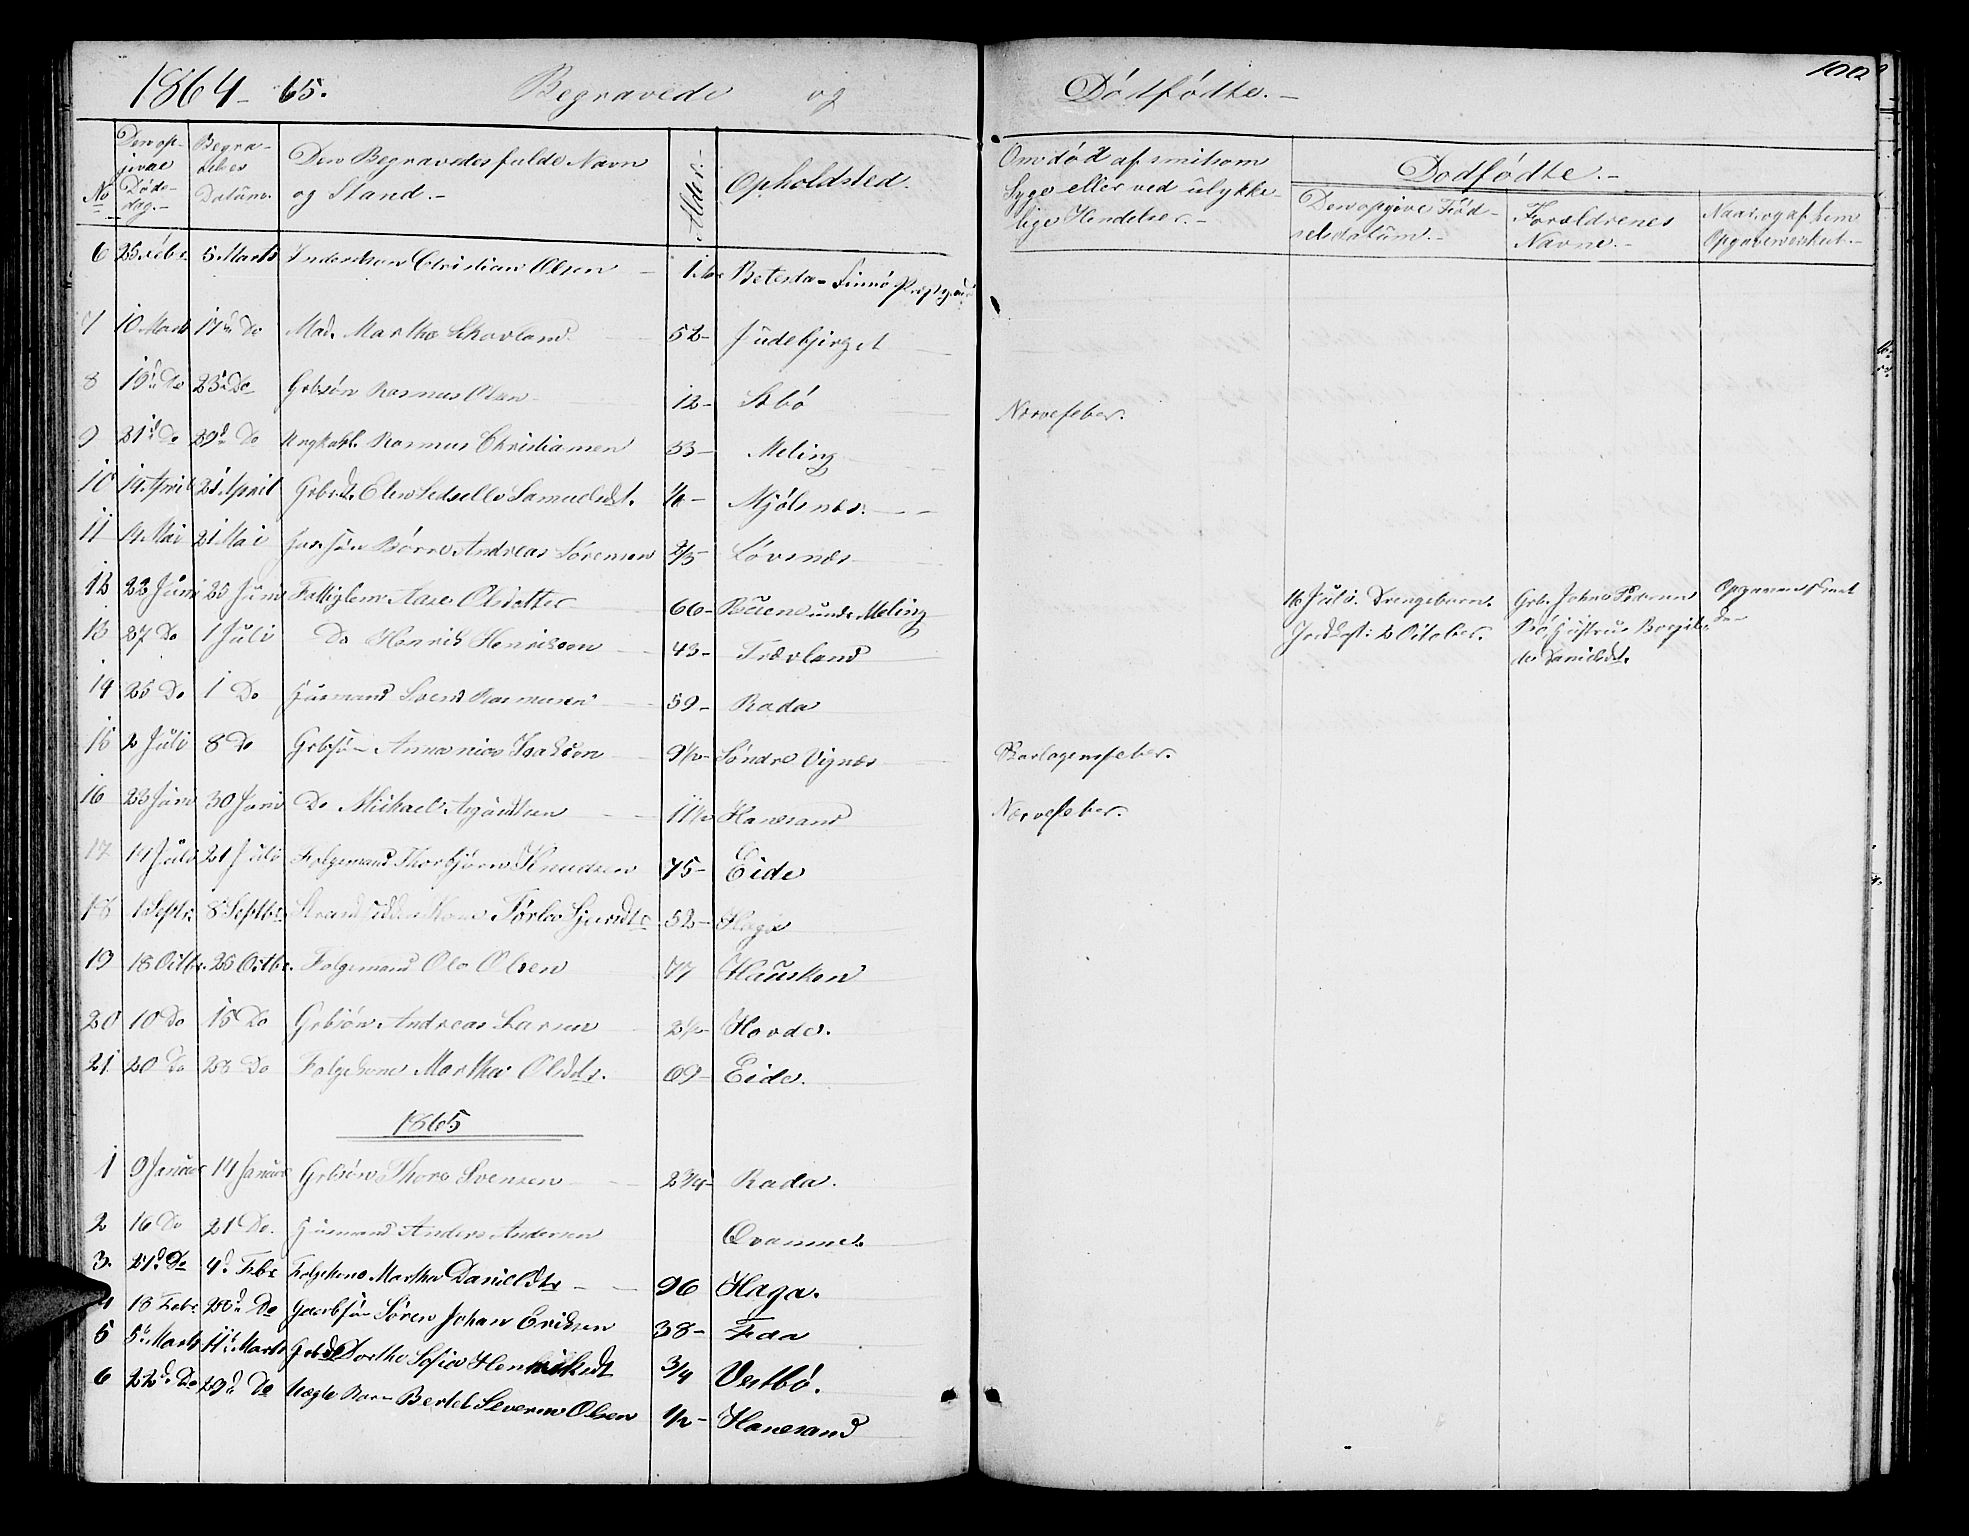 1864-65. Begravede og Dödfödte.- 100
No
Den op-
givne
Döds-
dag.-
Begra-
velses
Datum.
Den Begravedes fulde Navn
og Stand.-
Alder.
Opholdsted.
Om död af smitsom
Syge eller ved ulykke-
lige Hendelser.-
Dödfödte.-
Den opgivne Föd-
selsdatum.-
Forældrenes
Navne.-
Naar og af hvem
Opgave er skeet.-
6 25 Febr. 5 Marts Christian Olsen Betesda - Finnö Prgjd
7 10 Marts 17d Do Mad. Martha Skovland 52- Judebjerget
8 19d Do 23d Do Grbsön Rasmus Olsen 12- Sebö Nervefeber.
9 21d Do 29d Do Ungkarl. Rasmus Christiansen 53- Meling
10 14 April 21 April Grbdt. Elen Samuelsdt. Mjölsnes.
11 14 Mai 21 Mai Börre Andreas Sörensen Lövsnæs
12 22 Juni 25 Juni Fattiglem Aase Olsdatter 66- under Meling
16 Juli. Drengebarn. Grb. Johns Pedersen
Jordfæst: 2 October. Bö, Hustrue Borgil-
de Danielsdt.
13 27 Do 1 Juli Do Henrik Henrikson 43- Trævland
14 25 Do 1 Do Husmand Svend Rasmusen 59- Rada
15 2 Juli 8 Do Grbsö- Annanias Isaksen 9½- Söndre Vignæs Barlagensfeber.
16 23 Juni 30 Juni Do Michael 11½ Hanesand Nervefeber.
17 14 Juli 21 Juli Folgemand Thorbjörn Knudsen 75- Eide
18 1 Septr. 8 Septbr. Kone 52- Hage
19 18 Octbr. 25 Octbr. Folgemand Ole Olsen 77 Hausken
20 10 Do 15 Do Grbsön Andreas Larsen 2½- Hovde.
21. 20 Do 28 Do Folgekone Martha Olsdtr. 69- Eide.
1865
1 9 Januar 14 Januar Grbsön Thore Svensen 2¾- Rada.
2 16 Do 21 Do. Husmand Anders Andersen Qvamme.
3. 27d Do 4d Febr Folgekone Martha Danielsdtr - 96 Haga.
4 18 Febr. 26d Do Gaardsön- Sören Johan Eriksen 38- Fda
5 5d Marts 11d Marts Grbdt Dorthe Sofie Henrikksdt 3/4 Vestbö.
6 22d Do 29d Do Uægte Barn Bertel Severin Olsen 1/2- Hanesand